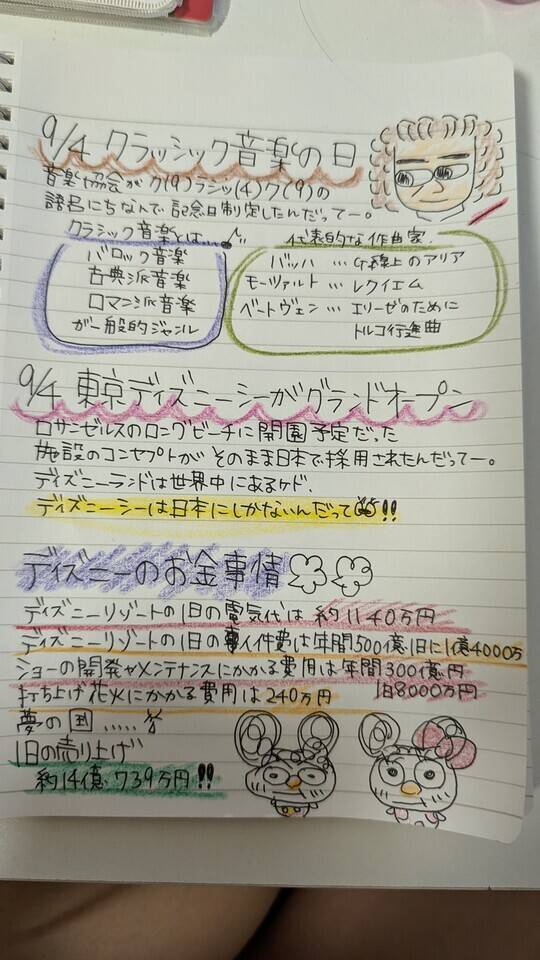 9/4 クラッシック音楽の日
音楽協会がク(9)ラシッ(4)ク(9)の
語呂にちなんで記念日制定したんだってー。
クラシック音楽とは...
バロック音楽
古典派音楽
ロマン派音楽
が一般的ジャンル
代表的な作曲家
バッハ … G線上のアリア
モーツァルト … レクイエム
ベートヴェン … エリーゼのために
トルコ行進曲
9/4 東京ディズニーシーがグランドオープン
ロサンゼルスのロングビーチに開園予定だった
施設のコンセプトがそのまま日本で採用されたんだってー。
ディズニーランドは世界中にあるケド、
ディズニーシーは日本にしかないんだって!!
ディズニーのお金事情
ディズニーリゾートの1日の電気代は 約1140万円
ディズニーリゾートの1日の人件費は年間500億.1日に1億4000万
ショーの開発やメンテナンスにかかる費用は年間300億円
1日8000万円
打ち上げ花火にかかる費用は240万円
夢の国.....
1日の売り上げ
約14億739万円!!